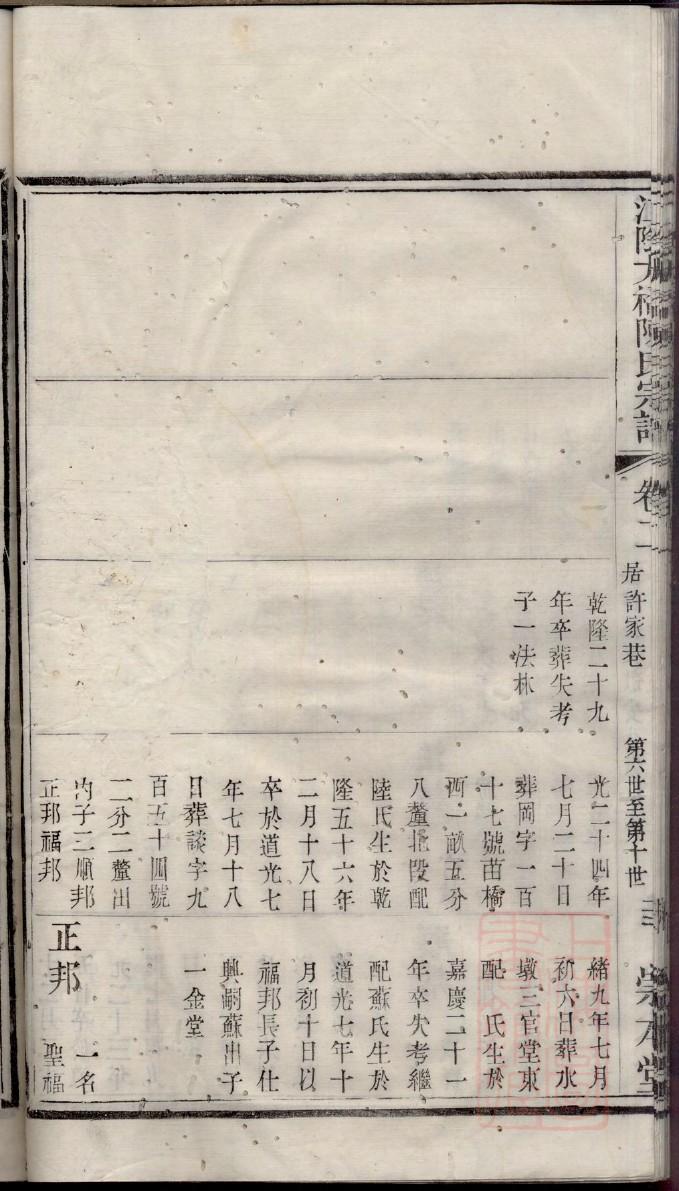 陳氏宗譜
卷二
居許家巷
第六世至第十世
乾隆二十九
年卒葬失考
子一法林
光二十四年
七月二十日
葬岡字一百
十七號苗橋
西一畝五分
八釐北段配
陸氏生於乾
隆五十六年
二月十八日
卒於道光七
年七月十八
日葬談字九
百五十四號
二分二釐出
內子三順邦
正邦福邦
緒九年七月
初六日葬水
墩三官堂東
配 氏生於
嘉慶二十一
年卒失考繼
配蘇氏生於
道光七年十
月初十日以
福邦長子仕
興嗣蘇出子
一金堂
正邦 一名聖福